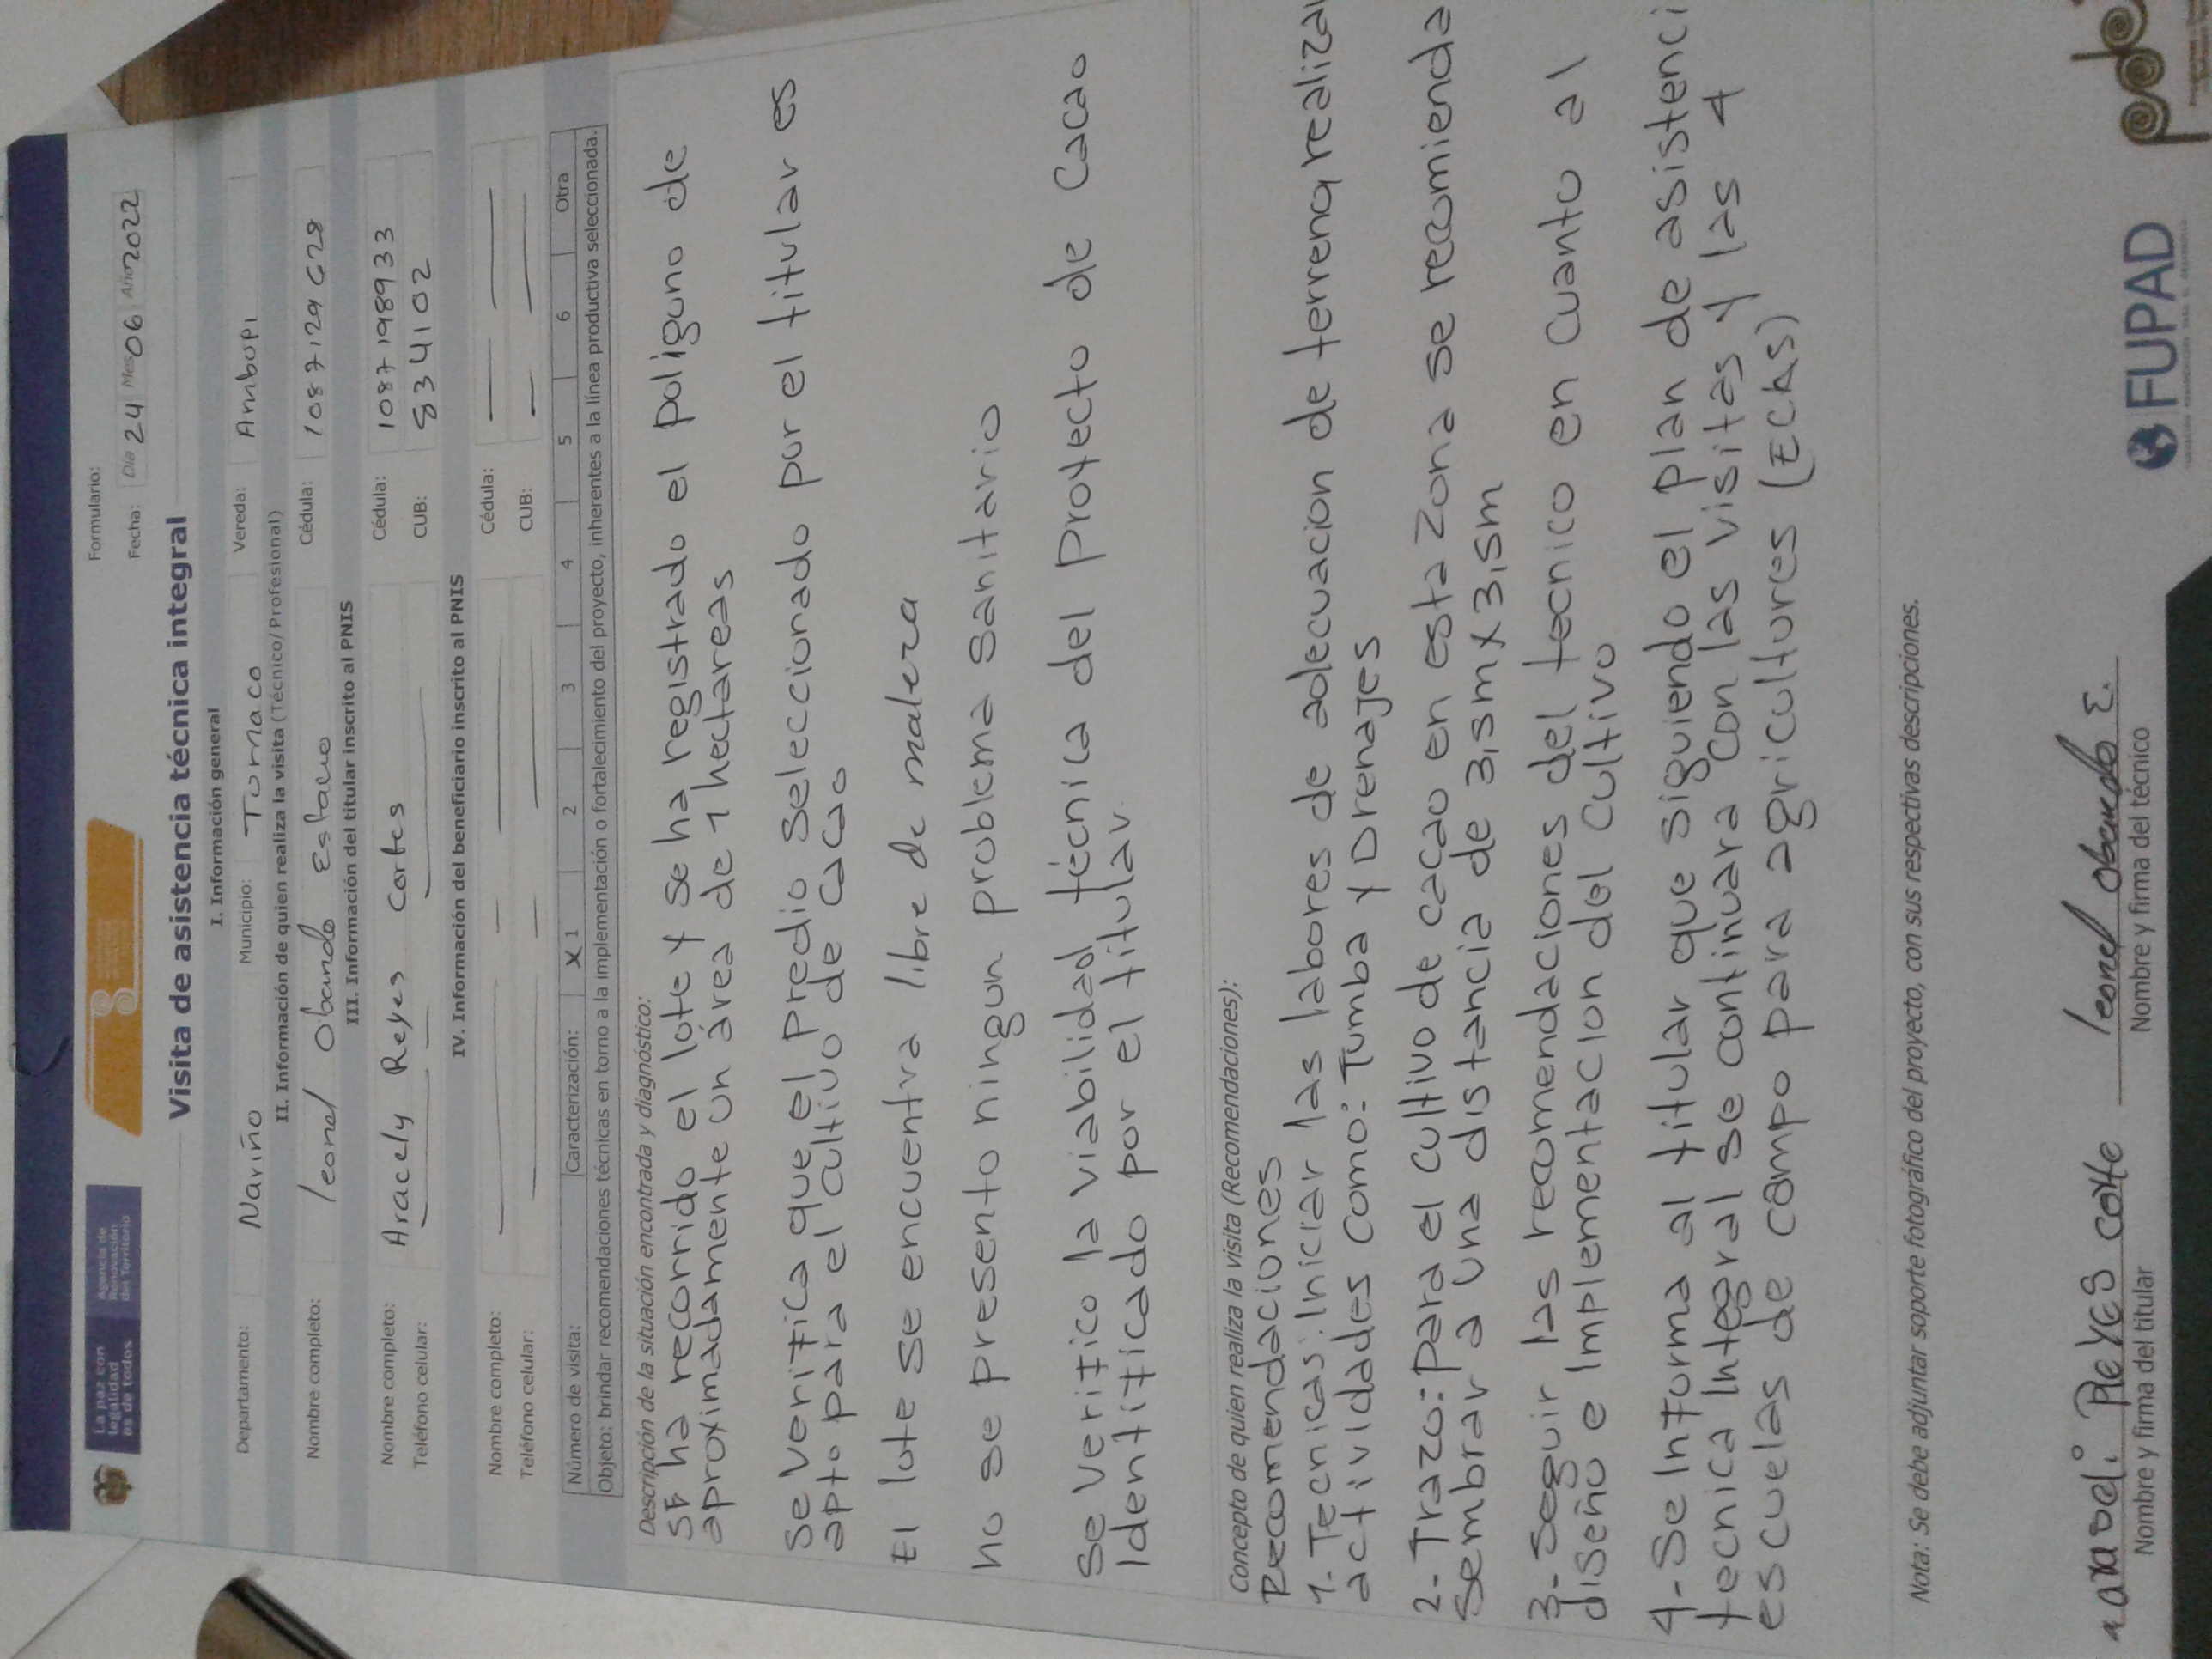 La paz con
legalidad
es de todos
Agencia de
Renovación
del Territorio
Formulario:
Fecha: Día 24 Mes 06 Año 2022
Visita de asistencia técnica integral
I. Información general
Departamento: Nariño Municipio: Tumaco Vereda: Ambupi
II. Información de quien realiza la visita (Técnico/Profesional)
Nombre completo: leonel Obando Estacio Cédula: 1087129628
III. Información del titular inscrito al PNIS
Nombre completo: Aracely Reyes Cortes Cédula: 1087198933
Teléfono celular: CUB: 834102
IV. Información del beneficiario inscrito al PNIS
Nombre completo: Cédula:
Teléfono celular: CUB:
Número de visita: Caracterización: X 1 2 3 4 5 6 Otra
Objeto: brindar recomendaciones técnicas en torno a la implementación o fortalecimiento del proyecto, inherentes a la línea productiva seleccionada.
Descripción de la situación encontrada y diagnóstico:
SE ha recorrido el lote y se ha registrado el poliguno de
aproximadamente un área de 1 hectareas
Se verifica que el predio seleccionado por el titular es
apto para el cultivo de cacao
El lote se encuentra libre de maleza
no se presento ningun problema sanitario
Se verifico la viabilidad técnica del proyecto de cacao
Identificado por el titular
Concepto de quien realiza la visita (Recomendaciones):
Recomendaciones
1- Tecnicas: Iniciar las labores de adecuacion de terreno, realizar
actividades como: Tumba y Drenajes
2- Trazo: Para el cultivo de cacao en esta zona se recomienda
Sembrar a una distancia de 3,5m x 3,5m
3- Seguir las recomendaciones del tecnico en cuanto al
diseño e implementacion del cultivo
4- Se informa al titular que siguiendo el plan de asistenci
tecnica Integral se continuara con las visitas y las 4
escuelas de campo para agricultures (ECAS)
Nota: Se debe adjuntar soporte fotográfico del proyecto, con sus respectivas descripciones.
araceli Reyes cortte leonel obando E.
Nombre y firma del titular Nombre y firma del técnico
FUPAD